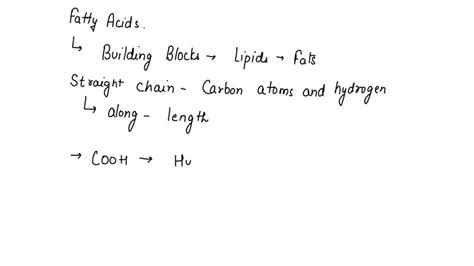 Fatty Acids.
↳ Building Blocks → Lipids → Fats
Straight chain - Carbon atoms and hydrogen
↳ along - length
→ COOH → Hu